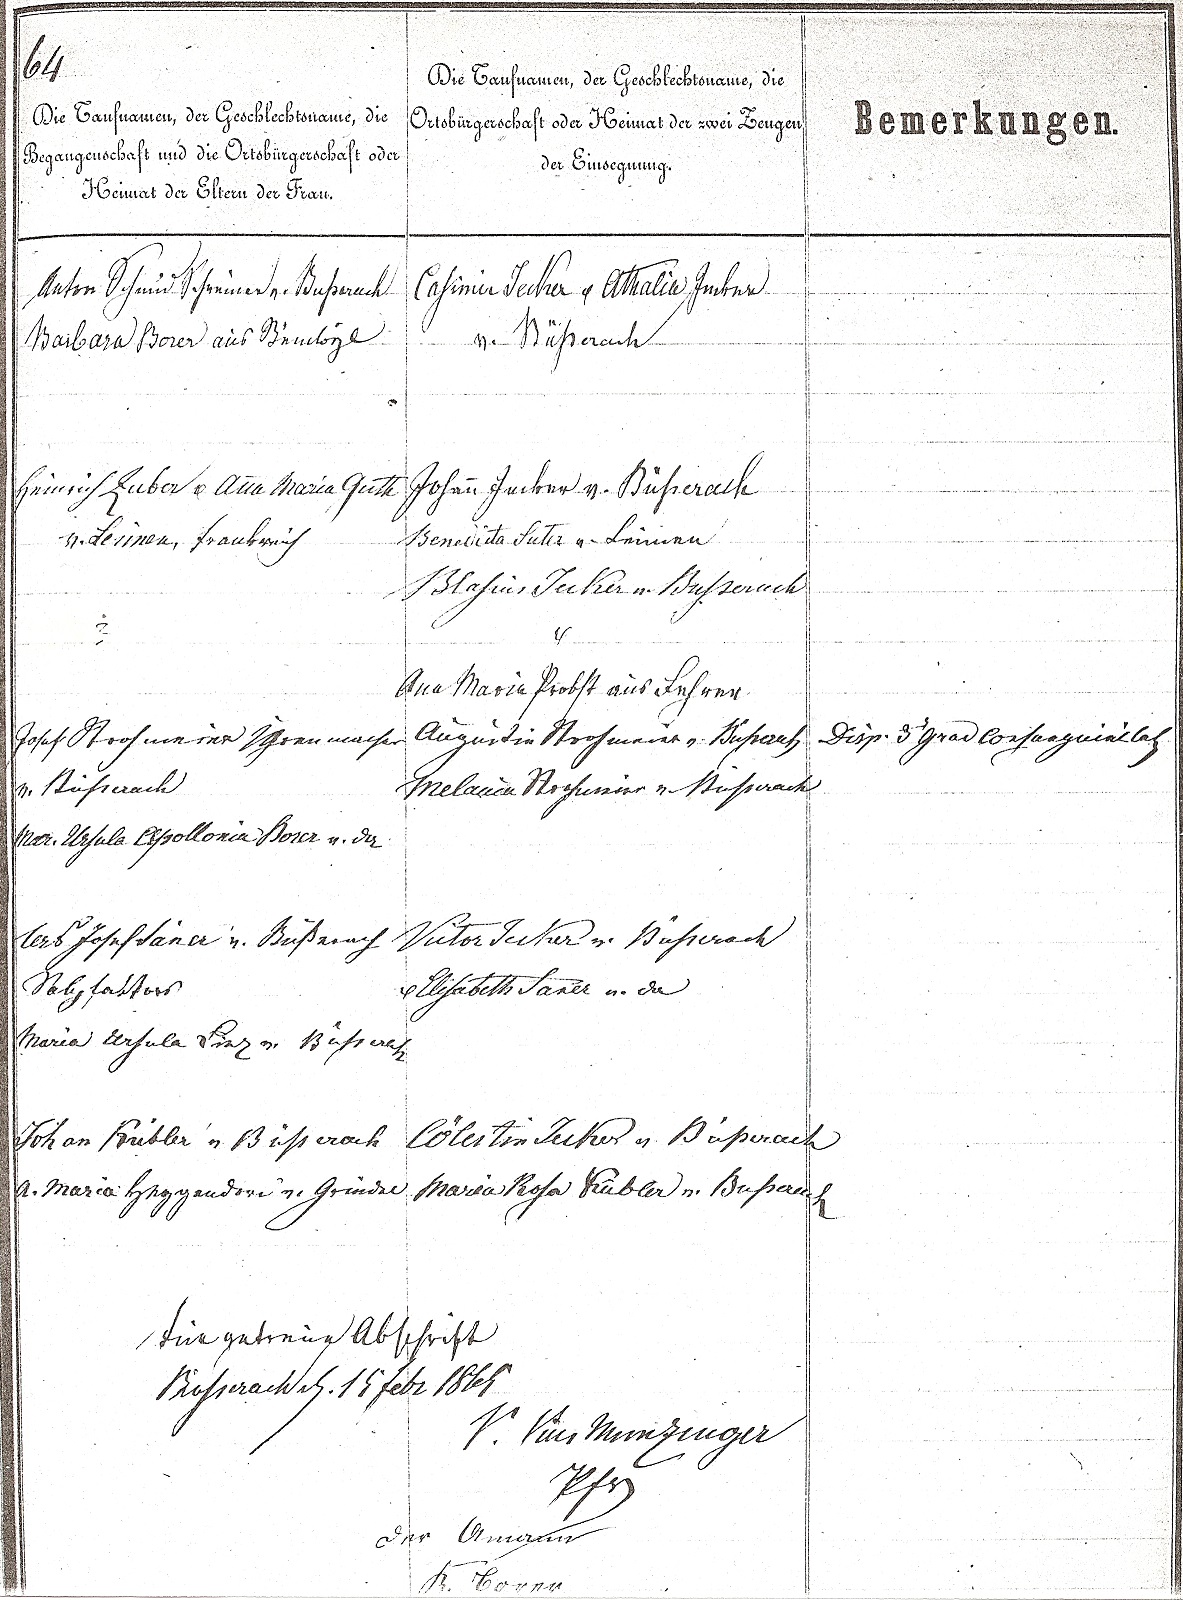 64
Die Taufnamen, der Geschlechtsname, die
Begangenschaft und die Ortsbürgerschaft oder
Heimat der Eltern der Frau.
Die Taufnamen, der Geschlechtsname, die
Ortsbürgerschaft oder Heimat der zwei Zeugen
der Einsegnung.
Bemerkungen.
Anton Schmid Schreiner v. Büßerach
Barbara Borer aus
Casimir Jecker & Athalia Jecker
v. Büßerach
Heinrich Huber & Aña Maria Guth
v. Leimen, Frankreich
Johañ Jecker v. Büßerach
Benedicta Suter v. Leimen
Blasius Jecker v. Büßerach
&
Ana Maria Probst aus
Josef Strohmeier Uhrenmacher
v. Büßerach
Mar. Ursula Apollonia Borer v. da
Augustin Strohmeier v. Büßerach
Melania Strohmeier v. Büßerach
Disp. 3 Grad
Urs Josef Saner v. Büßerach
Salzfaktors
Maria Ursula v. Büßerach
Victor Jecker v. Büßerach
& Elisabeth Saner v. da
Johan Kübler v Büßerach
A. Maria Heggendorn v. Grindel
Cölestin Jecker v. Büßerach
Maria Rosa Kübler v. Büßerach
Für getreue Abschrift
Büßerach d. 15 Febr 1865
P. Munzinger
Pfr
Der Amann
Borer